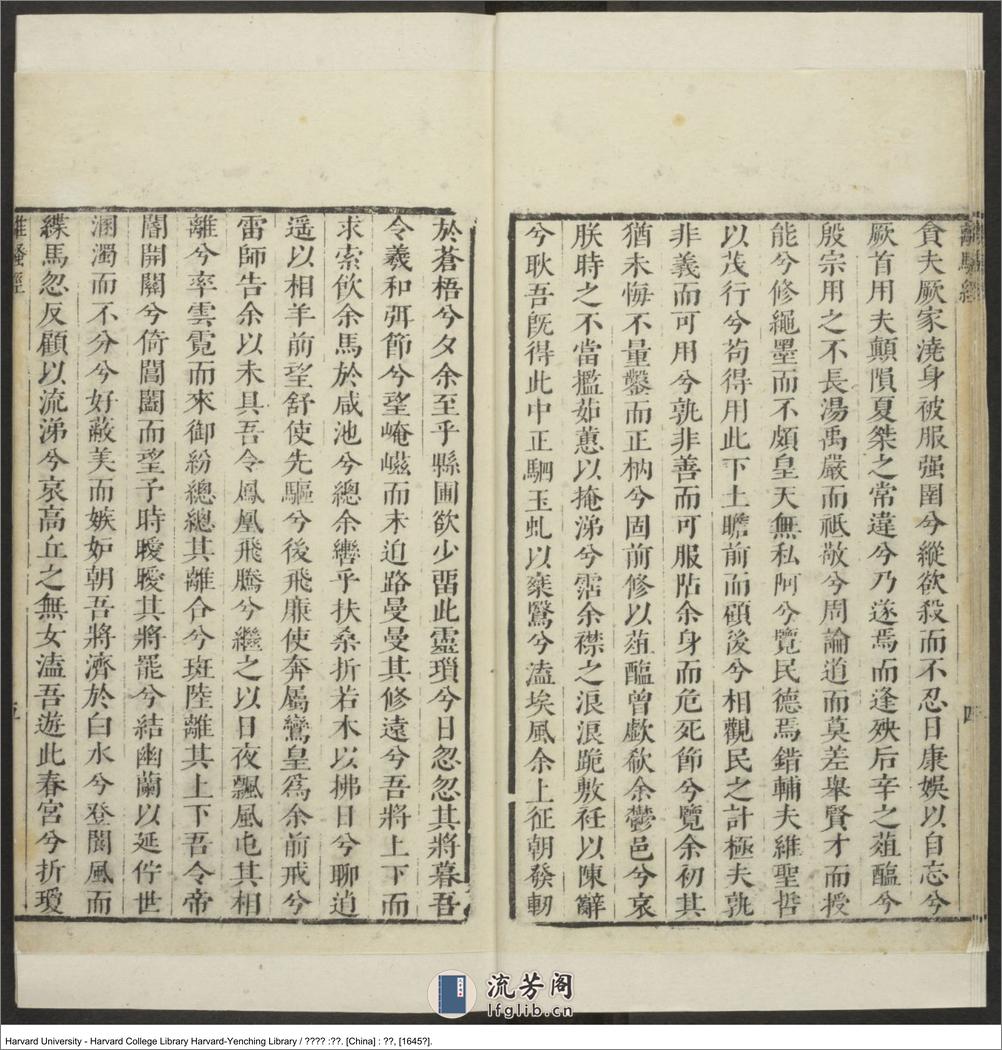 離騷經
四
貪夫厥家澆身被服强圉兮縱欲殺而不忍日康娛以自忘兮
厥首用夫顛隕夏桀之常違兮乃遂焉而逢殃后辛之菹醢兮
殷宗用之不長湯禹嚴而祗敬兮周論道而莫差舉賢才而授
能兮修繩墨而不頗皇天無私阿兮覽民德焉錯輔夫維聖哲
以茂行兮苟得用此下土瞻前而顧後兮相觀民之計極夫孰
非義而可用兮孰非善而可服阽余身而危死節兮覽余初其
猶未悔不量鑿而正枘兮固前修以菹醢曾歔欷余鬱邑兮哀
朕時之不當擥茹蕙以掩涕兮霑余襟之浪浪跪敷衽以陳辭
兮耿吾旣得此中正駟玉虬以椉鷖兮溘埃風余上征朝發軔
於蒼梧兮夕余至乎縣圃欲少畱此靈瑣兮日忽忽其將暮吾
令羲和弭節兮望崦嵫而未迫路曼曼其修遠兮吾將上下而
求索飲余馬於咸池兮總余轡乎扶桑折若木以拂日兮聊逍
遥以相羊前望舒使先驅兮後飛廉使奔屬鸞皇爲余前戒兮
雷師告余以未具吾令鳳凰飛騰兮繼之以日夜飄風屯其相
離兮率雲霓而來御紛總總其離合兮斑陸離其上下吾令帝
閽開關兮倚閶闔而望予時曖曖其將罷兮結幽蘭以延佇世
溷濁而不分兮好蔽美而嫉妒朝吾將濟於白水兮登閬風而
緤馬忽反顧以流涕兮哀高丘之無女溘吾遊此春宮兮折瓊
離騷經
流芳阁
lfglib.cn
Harvard University - Harvard College Library Harvard-Yenching Library / ???? :??. [China] : ??, [1645?].